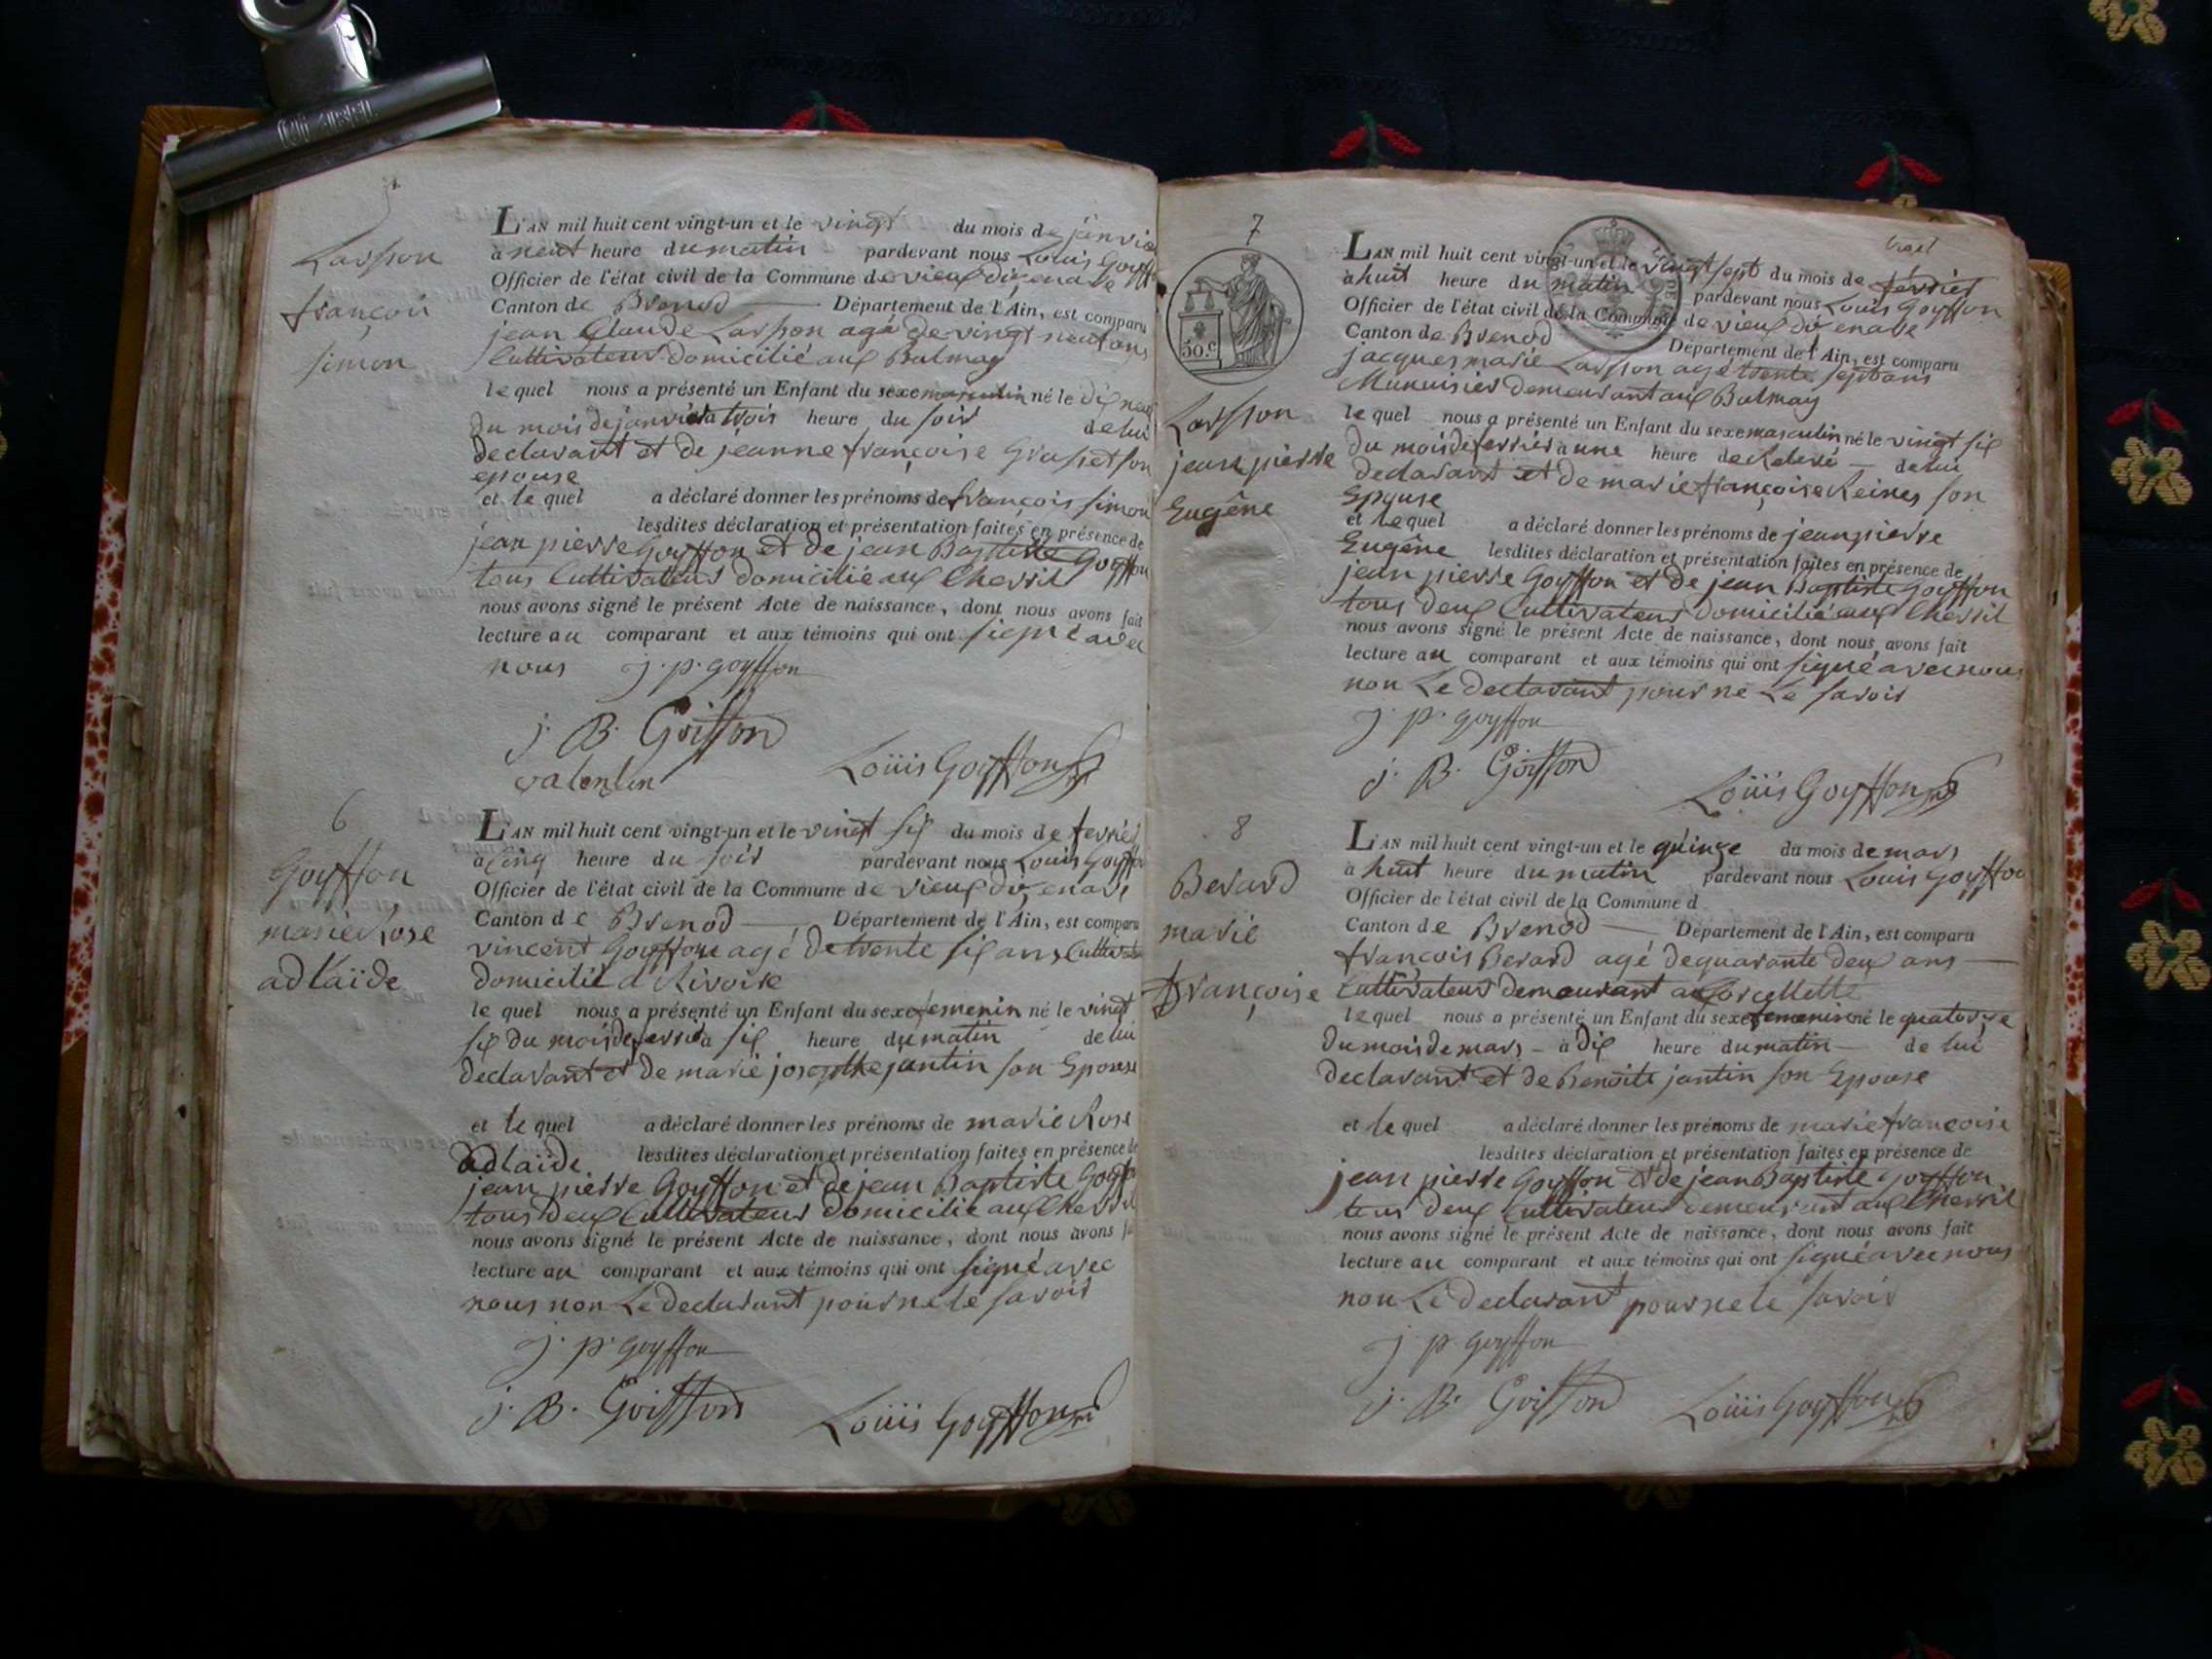 5
Lasson
françois
simon
L'AN mil huit cent vingt-un et le vingt du mois de janvie
à neuf heure du matin pardevant nous Louis Goyff
Officier de l'état civil de la Commune de vieux d'izenave
Canton de Brenod Département de l'Ain, est comparu
jean Claude Lasson agé de vingt neuf ans
Cultivateur domicilié aux Balmay
le quel nous a présenté un Enfant du sexe masculin né le dix neuf
du mois de janvier à trois heure du soir de lui
declarant et de jeanne françoise son
epouse
et le quel a déclaré donner les prénoms de françois simon
lesdites déclaration et présentation faites en présence de
jean pierre Goyffon et de jean Baptiste Goyffon
tous Cultivateurs domicilié aux Chevril
nous avons signé le présent Acte de naissance, dont nous avons fait
lecture au comparant et aux témoins qui ont signé avec
nous j. p. goyffon
j. B. Goiffon
valentin Loüis Goyffon
6
Goyffon
marie Rose
adlaïde
L'AN mil huit cent vingt-un et le vingt six du mois de fevrier
à cinq heure du soir pardevant nous Louis Goyffo
Officier de l'état civil de la Commune de vieux d'izenave
Canton de Brenod Département de l'Ain, est comparu
vincent Goyffon agé de trente six ans Cultivate
domicilié a Rivoire
le quel nous a présenté un Enfant du sexe femenin né le vingt
six du mois de fevrier à six heure du matin de lui
declarant et de marie josephte jantin son Epouse
et le quel a déclaré donner les prénoms de marie Rose
adlaïde lesdites déclaration et présentation faites en présence de
jean pierre Goyffon et de jean Baptiste Goyffo
tous deux Cultivateurs domicilié aux Chevril
nous avons signé le présent Acte de naissance, dont nous avons f
lecture au comparant et aux témoins qui ont signé avec
nous non Le declarant pour ne le savoir
j. p. goyffon
j. B. Goiffon Loüis Goyffon
7
50.c
Lasson
jean pierre
Eugêne
L'AN mil huit cent vingt-un et le vingt sept du mois de février
à huit heure du matin pardevant nous Louis Goyffon
Officier de l'état civil de la Commune de vieux d'izenave
Canton de Brenod Département de l'Ain, est comparu
jacques marie Lasson agé trente sept ans
Menuisier demeurant aux Balmay
le quel nous a présenté un Enfant du sexe masculin né le vingt six
du mois de fevrier à une heure de Relevé de lui
declarant et de marie françoise Reines son
Epouse
et le quel a déclaré donner les prénoms de jean pierre
Eugêne lesdites déclaration et présentation faites en présence de
jean pierre Goyffon et de jean Baptiste Goyffon
tous deux Cultivateurs domicilié aux Chevril
nous avons signé le présent Acte de naissance, dont nous avons fait
lecture au comparant et aux témoins qui ont signé avec nous
non Le declarant pour ne Le savoir
j. p. goyffon
j. B. Goiffon
Loüis Goyffon
8
Berard
marie
françoise
L'AN mil huit cent vingt-un et le quinze du mois de mars
à huit heure du matin pardevant nous Louis Goyffon
Officier de l'état civil de la Commune d
Canton de Brenod Département de l'Ain, est comparu
françois Berard agé de quarante deux ans
Cultivateur demeurant a
le quel nous a présenté un Enfant du sexe femenin né le quatorze
du mois de mars à dix heure du matin de lui
declarant et de Benoîte jantin son Epouse
et le quel a déclaré donner les prénoms de marie françoise
lesdites déclaration et présentation faites en présence de
jean pierre Goyffon et de jean Baptiste goyffon
tous deux Cultivateurs demeurant aux Chevril
nous avons signé le présent Acte de naissance, dont nous avons fait
lecture au comparant et aux témoins qui ont signé avec nous
non Le declarant pour ne le savoir
j. p. goyffon
j. B. Goiffon Loüis Goyffon